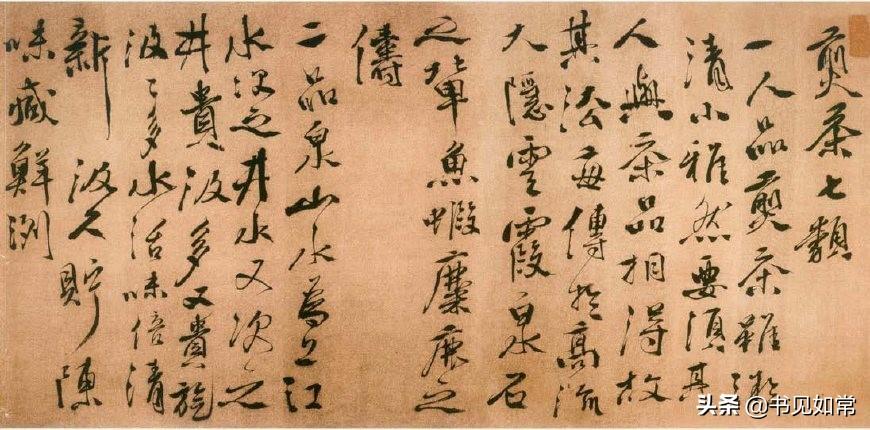 煎茶七類
一人品煎茶雖微
清小雅然要須其
人與茶品相得故
其法每傳於高流
大隱雲霞泉石
之輩魚蝦麋鹿之
儔
二品泉山水為上江
水次之井水又次之
井貴汲多又貴旋
汲〻多水活味倍清
新汲久貯陳
味減鮮冽
头条 @书见如常